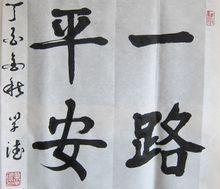 一路
平安
丁亥秋